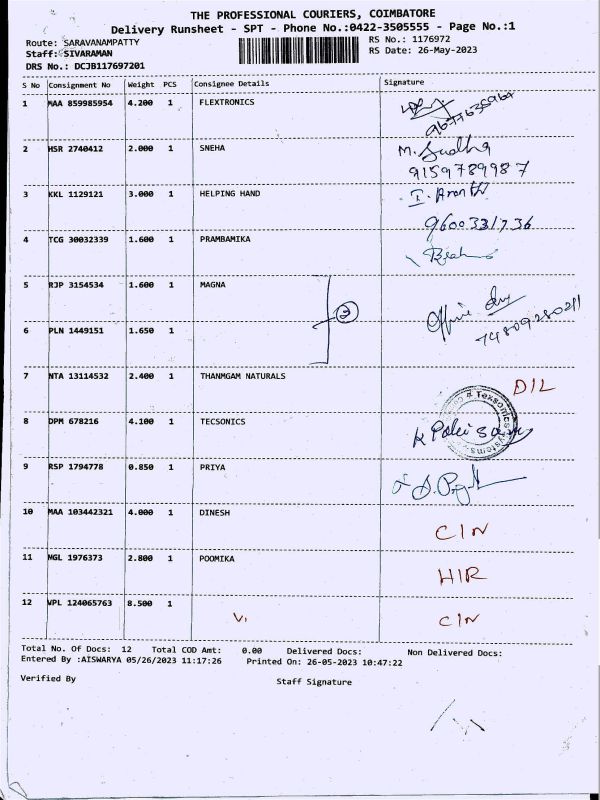 THE PROFESSIONAL COURIERS, COIMBATORE
Delivery Runsheet - SPT - Phone No.:0422-3505555 - Page No.:1
Route: SARAVANAMPATTY RS No.: 1176972
Staff: SIVARAMAN RS Date: 26-May-2023
DRS No.: DCJB117697201
S No Consignment No Weight PCS Consignee Details Signature
1 MAA 859985954 4.200 1 FLEXTRONICS
2 HSR 2740412 2.000 1 SNEHA M. Sudha
9159789987
3 KKL 1129121 3.000 1 HELPING HAND
9600331736
4 TCG 30032339 1.600 1 PRAMBAMIKA
5 RJP 3154534 1.600 1 MAGNA
2
6 PLN 1449151 1.650 1
7 NTA 13114532 2.400 1 THANMGAM NATURALS DIL
8 DPM 678216 4.100 1 TECSONICS
9 RSP 1794778 0.850 1 PRIYA
10 MAA 103442321 4.000 1 DINESH CIN
11 WGL 1976373 2.800 1 POOMIKA HIR
12 VPL 124065763 8.500 1 CIN
Total No. Of Docs: 12 Total COD Amt: 0.00 Delivered Docs: Non Delivered Docs:
Entered By :AISWARYA 05/26/2023 11:17:26 Printed On: 26-05-2023 10:47:22
Verified By Staff Signature